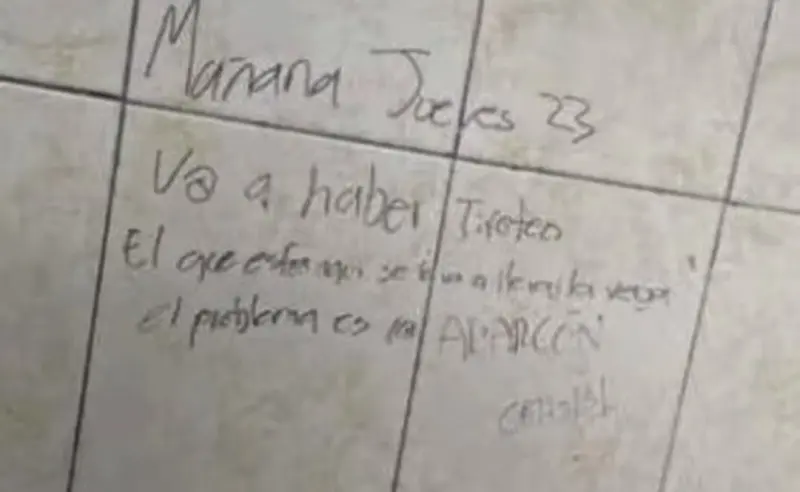 Mañana Jueves 23
Va a haber Tiroteo
El que este aqui se va a llevar la verga
el problema es